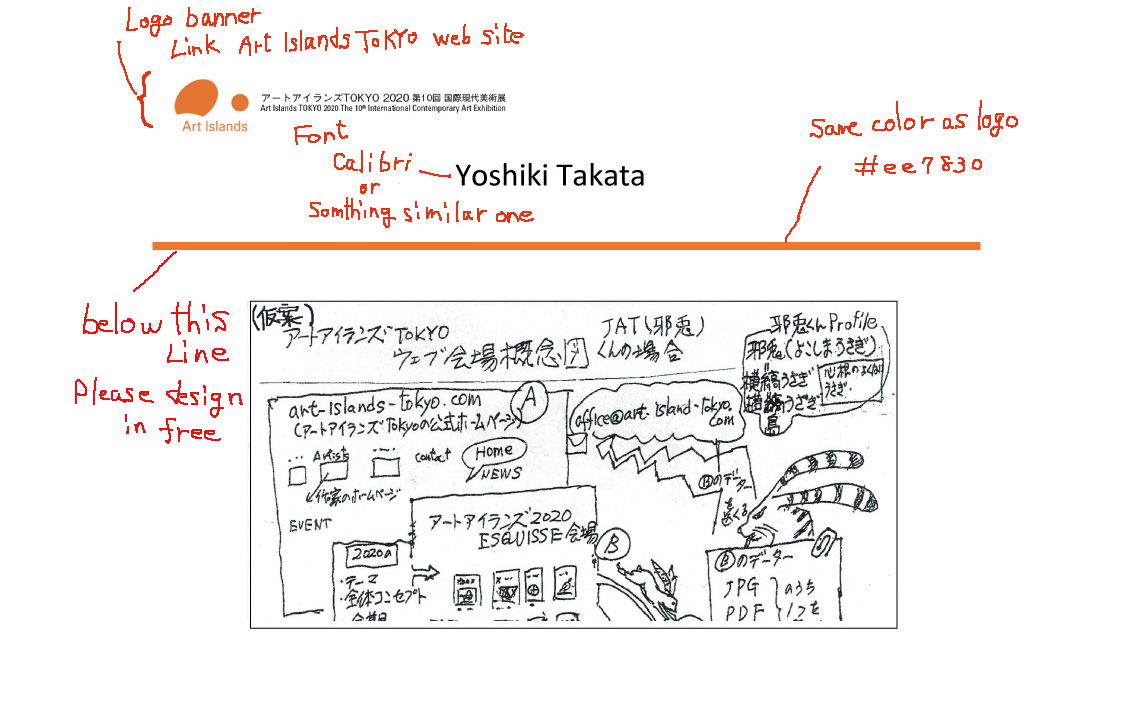 Logo banner
Link Art Islands TOKYO web site
アートアイランズTOKYO 2020 第10回 国際現代美術展
Art Islands TOKYO 2020 The 10th International Contemporary Art Exhibition
Art Islands
Font
Calibri
or
Somthing similar one
Yoshiki Takata
Same color as logo
#ee7830
below this
Line
Please design
in free
(仮案)
アートアイランズTOKYO
ウェブ会場概念図
JAT(邪兎)
くんの場合
邪兎くんProfile
邪兎(よこしまうさぎ)
横縞うさぎ
横縞うさぎ
島
うさぎ.
A
art-islands-tokyo.com
(アートアイランズTokyoの公式ホームページ)
office@art-island-tokyo.
com
... Artists ... contact
Home
NEWS
作家のホームページ
EVENT
Bのデーター
を
送くる
アートアイランズ2020
ESQUISSE会場
B
2020a
・テーマ
・全体コンセプト
会期
Bのデーター
JPG
PDF
のうち
1つを